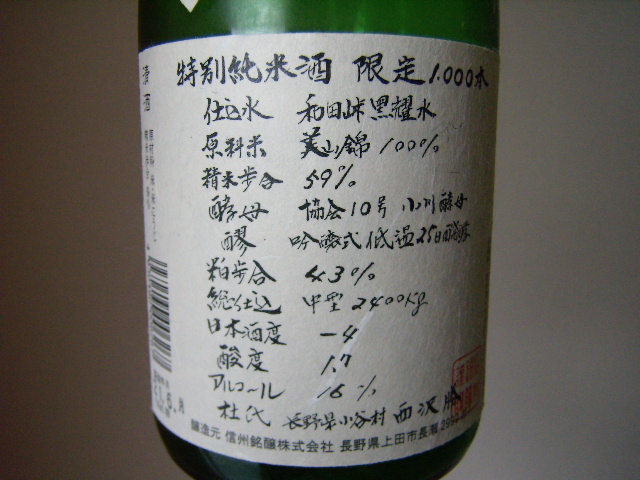 特別純米酒 限定1.000本
仕込水 和田峠黒耀水
原料米 美山錦 100%
精米歩合 59%
酵母 協会10号 小川酵母
醪 吟醸式低温25日
粕歩合 43%
総仕込 中型 2400kg
日本酒度 -4
酸度 1.7
アルコール 16%
杜氏 長野県小谷村 西沢
醸造元 信州銘醸株式会社 長野県上田市長瀬
清酒